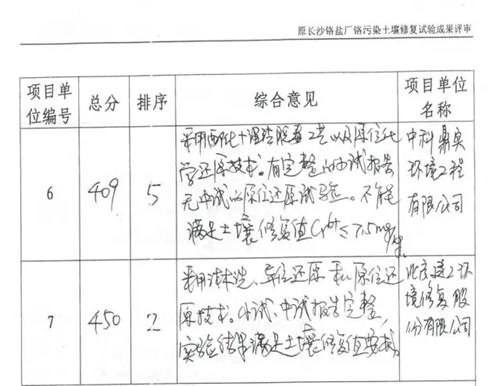 原长沙铬盐厂铬污染土壤修复试验成果评审
项目单位编号 总分 排序 综合意见 项目单位名称
6 409 5
采用
工艺以及原位化
学还原技术。有完整的小试报告
无中试的原位还原试验。不能
满足土壤修复值Cr6+≤7.5mg/
中科鼎实
环境工程
有限公司
7 450 2
采用 洗、异位还原和原位还
原技术。小试、中试报告完整,
实验结果满足土壤修复值要求。
北京建工环
境修复股
份有限公司